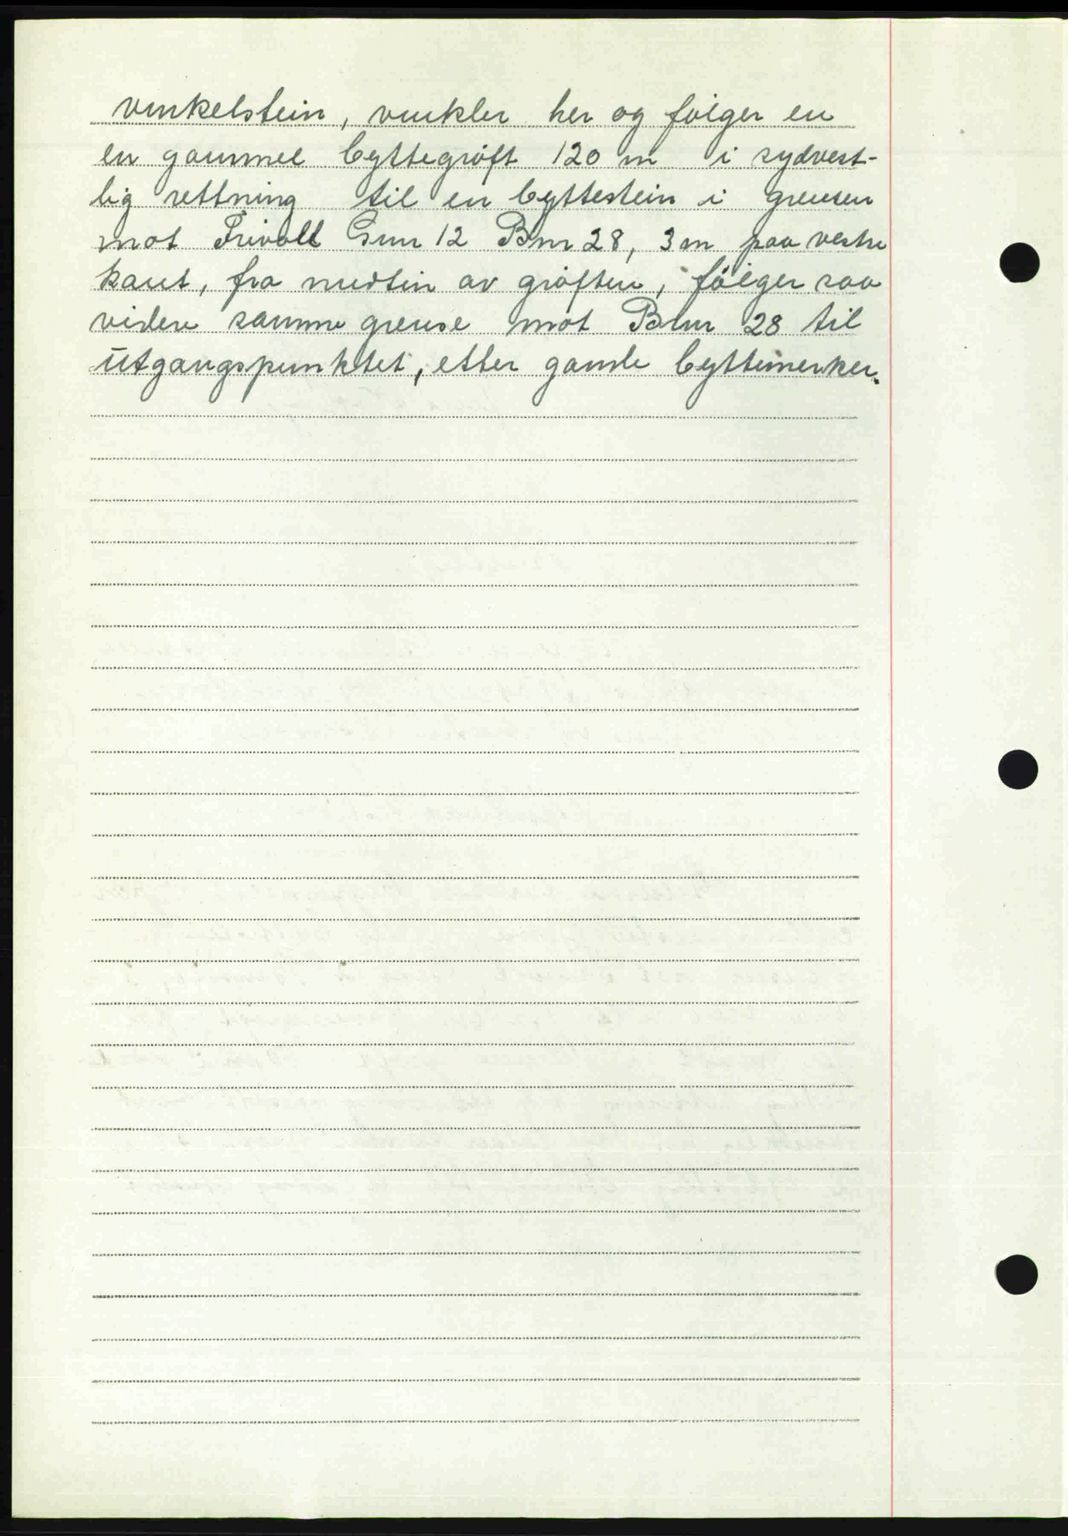 vinkelstein, vinkler her og følger en
en gammel byttegrøft 120 m i sydvest-
lig rettning til en byttestein i grensen
mot Frivoll Gnr 12 Bnr 28, 3 m paa vestre
kant, fra midtin av grøften, følger saa
videre samme grense mot Bnr 28 til
utgangspunktet, etter gamle byttemerker.